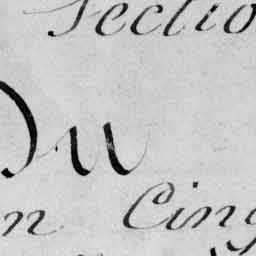 Sectio
Du
n Cinq